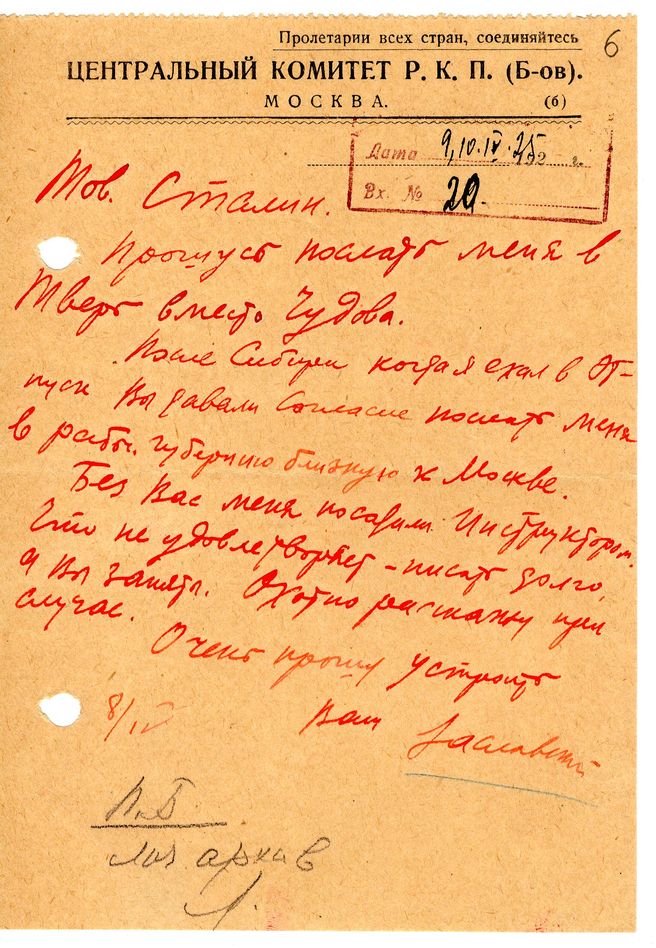 Пролетарии всех стран, соединяйтесь
6
ЦЕНТРАЛЬНЫЙ КОМИТЕТ Р. К. П. (Б-ов).
МОСКВА. (б)
Дата 9,10.IV.25 192 г.
Вх. № 20.
Тов. Сталин.
Прошусь послать меня в
Тверь вместо Чудова.
После Сибири когда я ехал в от-
пуск Вы давали согласие послать меня
в рабоч. губернию близкую к Москве.
Без Вас меня посадили Инструктором.
Что не удовлетворяет – писать долго,
а Вы заняты. Охотно расскажу при
случае.
Очень прошу устроить
8/IV Ваш Заславский
П.Б
Лич архив